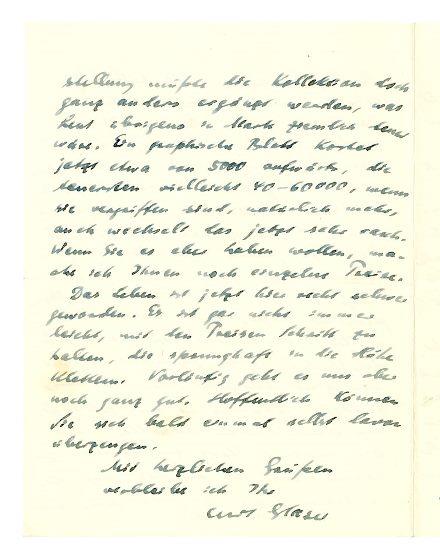 stellung müßte die Kollektion doch
ganz anders ergänzt werden, was
heut übrigens in Mark ziemlich teuer
wäre. Ein graphisches Blatt kostet
jetzt etwa von 5000 aufwärts, die
teuersten vielleicht 40-60000, wenn
sie vergriffen sind, natürlich mehr,
auch wechselt das jetzt sehr rasch.
Wenn Sie es aber haben wollen, ma-
che ich Ihnen noch einzelne Preise.
Das Leben ist jetzt hier recht schwer
geworden. Es ist gar nicht immer
leicht, mit den Preisen Schritt zu
halten, die sprunghaft in die Höhe
klettern. Vorläufig geht es uns aber
noch ganz gut. Hoffentlich können
Sie sich bald einmal selbst davon
überzeugen.
Mit herzlichen Grüßen
verbleibe ich Ihr
Curt Glaser